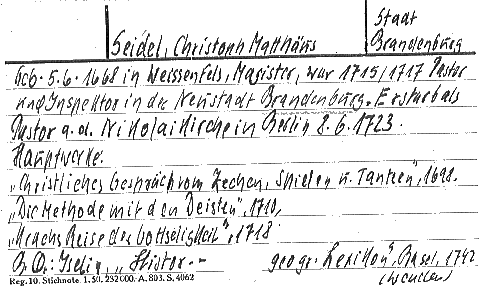 Stadt
Seidel, Christoph Matthäus Brandenburg
Geb. 5.6.1668 in Weissenfels, Magister, war 1715/1717 Pastor
und Inspektor in der Neustadt Brandenburg. Er starb als
Pastor a.d. Nikolaikirche in Berlin 8.6.1723.
Hauptwerke:
„Christliches Gespräch vom Zechen, Spielen u. Tantzen", 1698.
„Die Methode mit den Deisten", 1710,
Reise der Gottseligkeit", 1718
B.Q.: Iselin, „Histor.- geogr. Lexikon", Basel, 1742
Reg. 10. Stichnote. 1. 50. 232000. A. 803. S. 4062